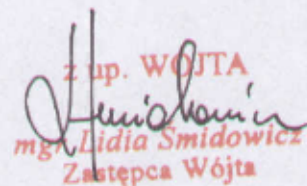 z up. WÓJTA
mgr Lidia Smidowicz
Zastępca Wójta